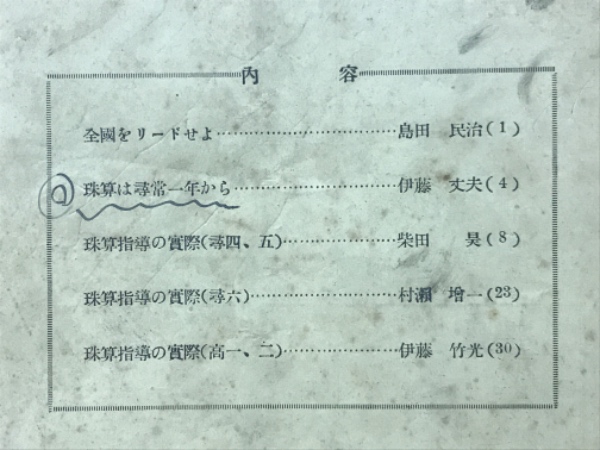 內容
全國をリードせよ……………………………島田 民治(1)
珠算は尋常一年から…………………………伊藤 丈夫(4)
珠算指導の實際(尋四、五)…………………柴田 昊(8)
珠算指導の實際(尋六)………………………村瀨 增一(23)
珠算指導の實際(高一、二)…………………伊藤 竹光(30)